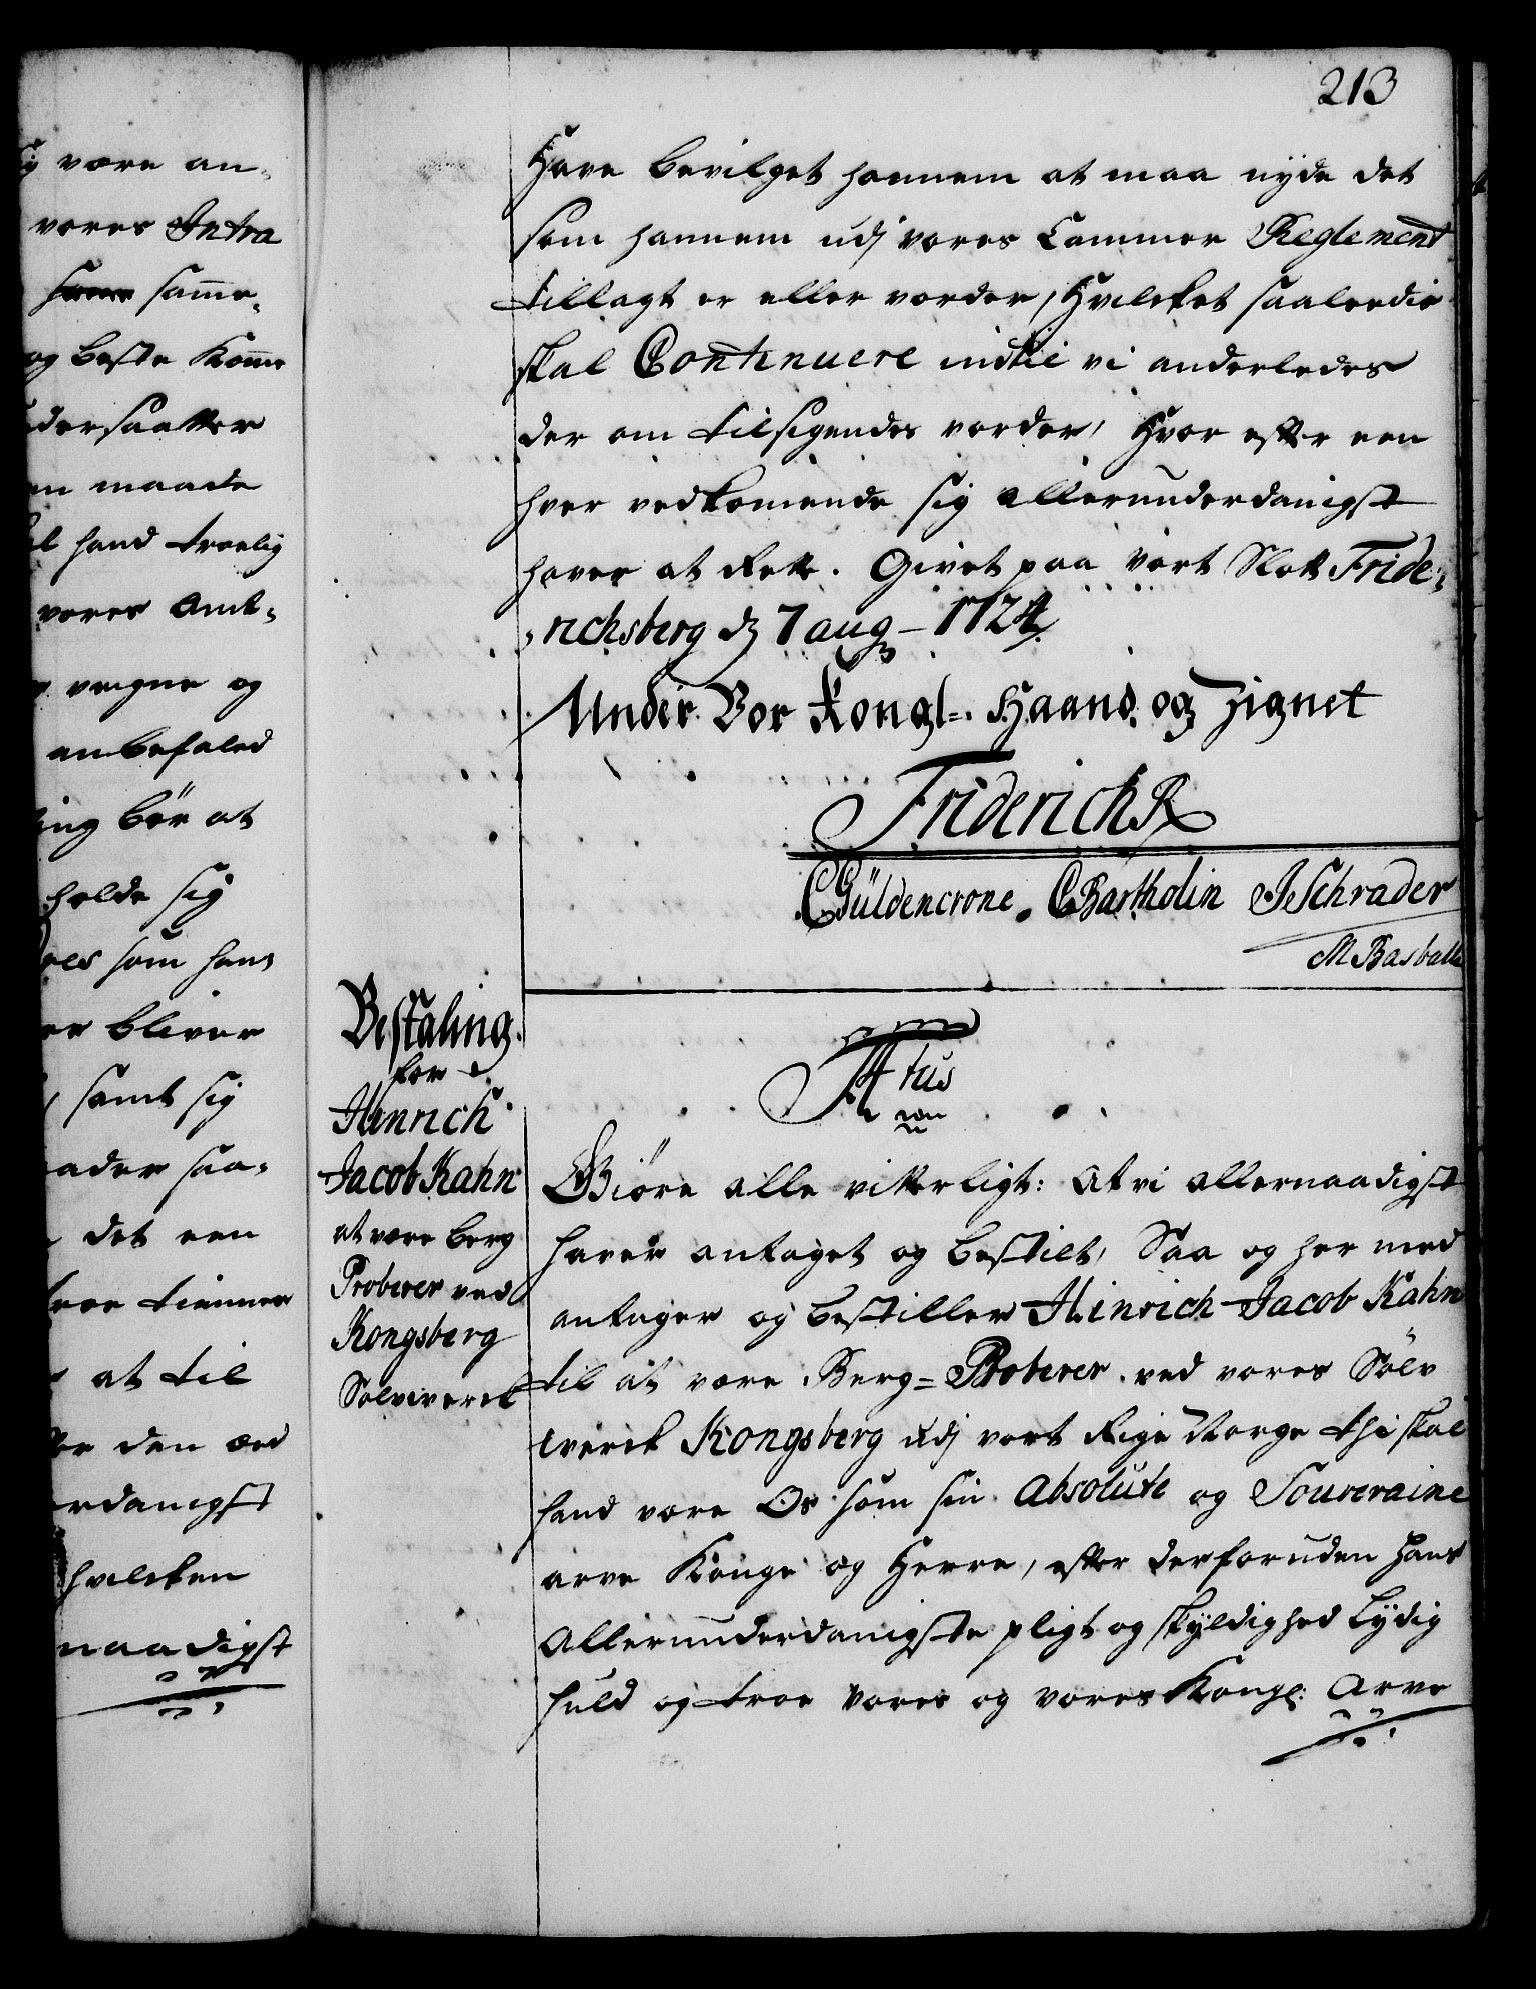 213
være an-
vores Intra
samme-
og beste Komme
dersaatter
en maade
hand troelig
vores Amt-
veigne og
anbefaled
ing bör at
holde sig
som hans
er bliver
samt sig
ader saa-
det een
troe tienner
at til
den æed
erdanigst
hvilcken
naadigst
Have bevilget hannem at maa nyde det
som hannem udj vores Cammer Reglement
tillagt er eller vorder, Hvilcket saaleedis
skal Continuere indtil vi anderledes
der om tilsigendes vorder, Hvor efter een
hver vedkomende sig allerunderdanigst
haver at Rette. Givet paa Vort Slott Fride-
-richsberg d 7 aug - 1724
Under Vor Kongl. Haand og Zignet
Friderich R
CGüldencrone. CBartholin JSchrader
M Basballe
Bestaling
for
Hinrich
Jacob Kahn
at være berg
Proberer ved
Kongsberg
Sølvwerck
Ftus
Giöre alle vitterligt: At vi allernaadigst
haver antaget og bestilt, Saa og her med
antager og bestiller Hinrich Jacob Kahn
til at være Berg- Proberer ved vores Sölv
werck Kongsberg udj vort Rige Norge thi skal
hand være Os som sin Absolute og Souveraine
arve Konge og Herre, efter derforuden hans
Allerunderdanigste pligt og skyldighed Lydig
huld og troe Vores og vores Kongl: Arve